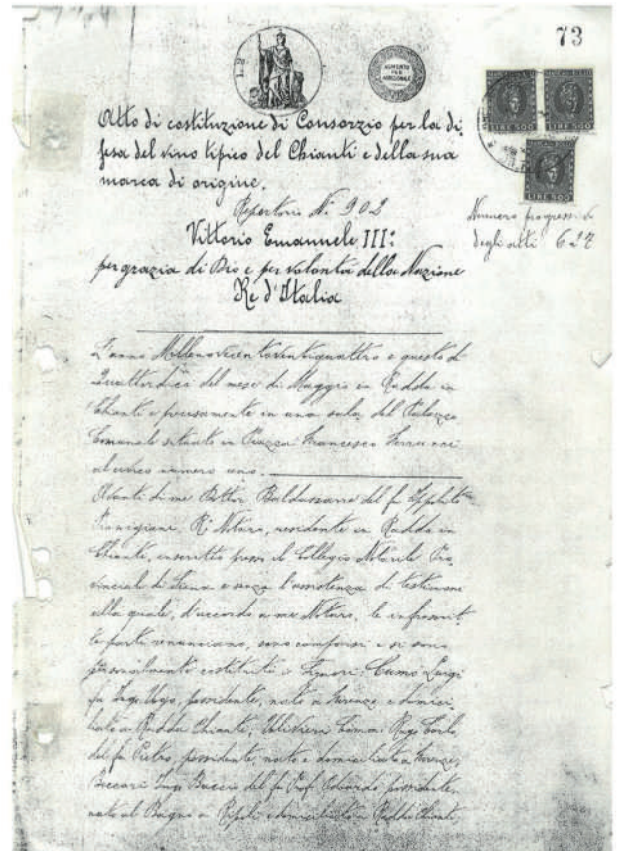 73
L. 2
AUMENTO
PER
ADDIZIONALE
LIRE 500
LIRE 500
LIRE 500
Atto di costituzione di Consorzio per la di
fesa del vino tipico del Chianti e della sua
marca di origine.
Repertorio N. 902
Numero progressivo
degli atti 627
Vittorio Emanuele III:
per grazia di Dio e per volontà della Nazione
Re d'Italia
L'anno Millenovecentoventiquattro e questo dì
Quattordici del mese di Maggio in Radda in
Chianti e precisamente in una sala del Palazzo
Comunale situato in Piazza Francesco Ferrucci
al civico numero uno.
Avanti di me Dottor Baldassarre del fu Ippolito
R. Notaro, residente in Radda in
Chianti, inscritto presso il Collegio Notarile Pro
vinciale di Siena e senza l'assistenza di testimoni
alla quale, d'accordo a me Notaro, le infrascrit
te parti renunciano, sono comparsi e si sono
personalmente costituiti i Signori: Luigi
fu Ugo, possidente, nato a Firenze e domici
liato a Radda Chianti, Comm. Carlo
del fu Pietro, possidente, nato e domiciliato a Firenze,
Beccari Baccio del fu Prof. Odoardo possidente,
nato al Bagno a Ripoli e domiciliato a Radda Chianti,